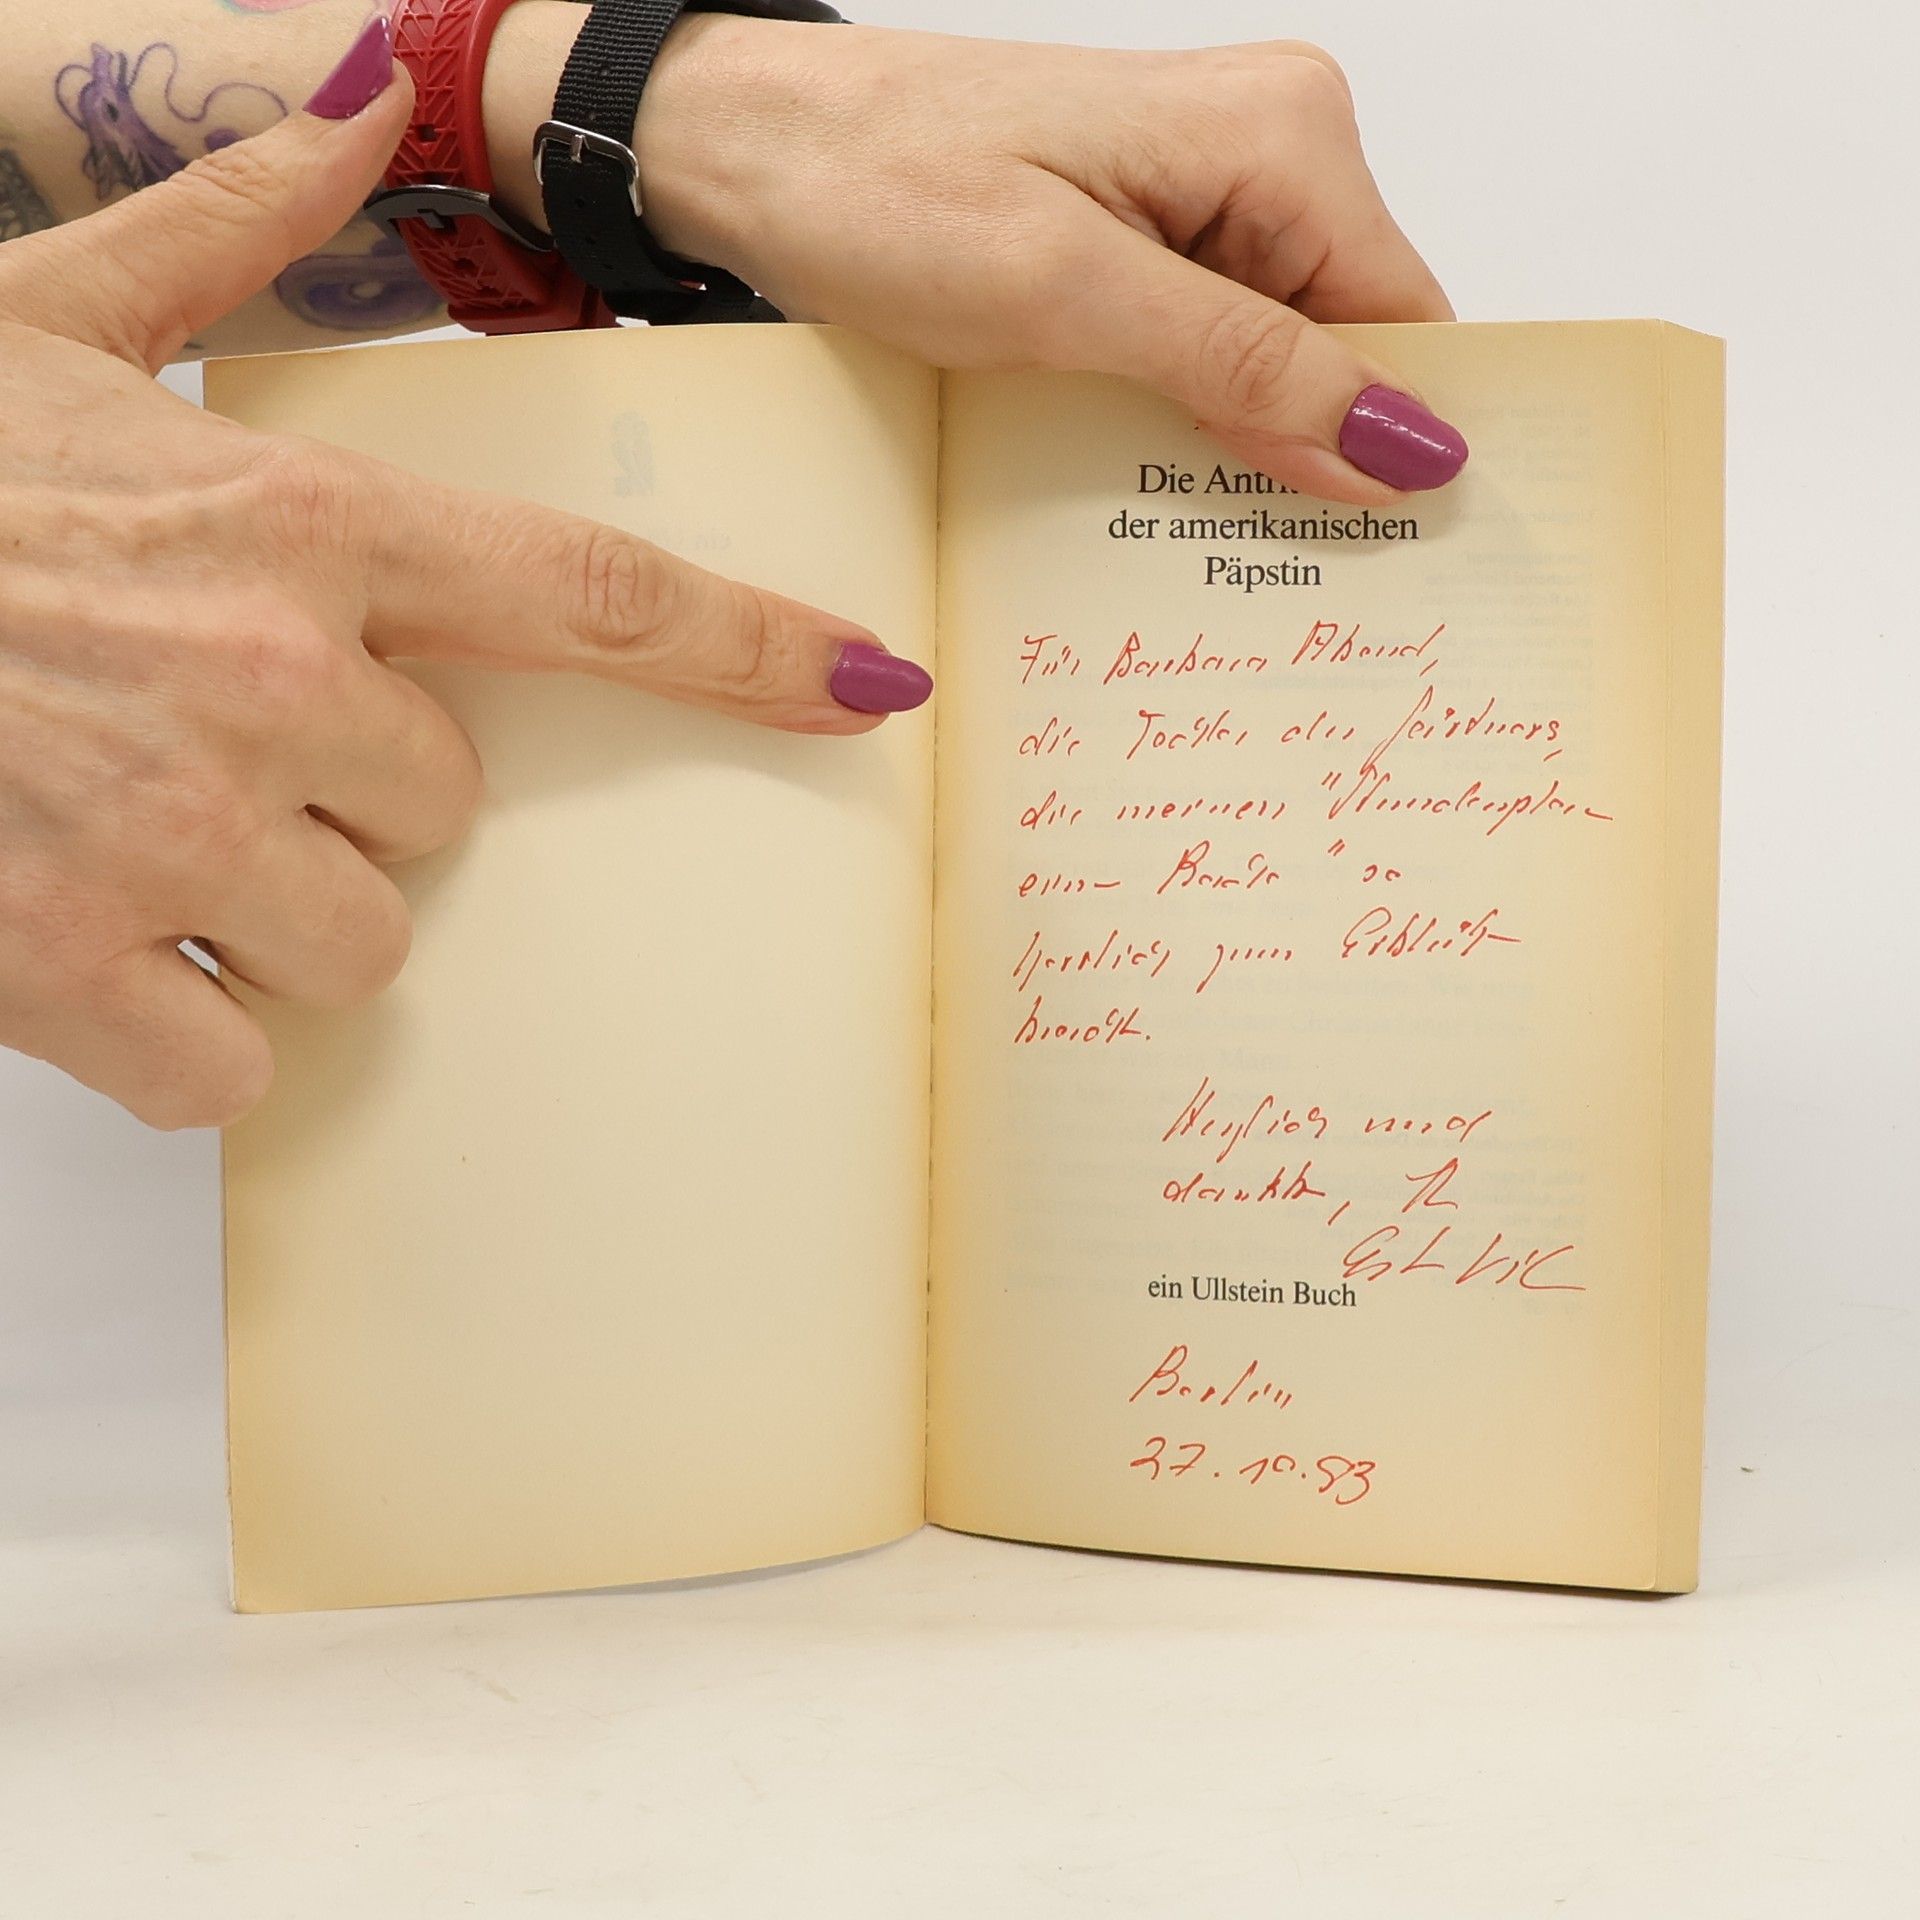 Die Antri
der amerikanischen
Päpstin
Für Barbara Abend,
die Tochter des Gärtners,
die meinen "Stundenplan
einer Rache" so
herrlich zum Erblühen
bracht.
Herzlich und
dankbar, Ihr
ein Ullstein Buch
Berlin
27.10.83